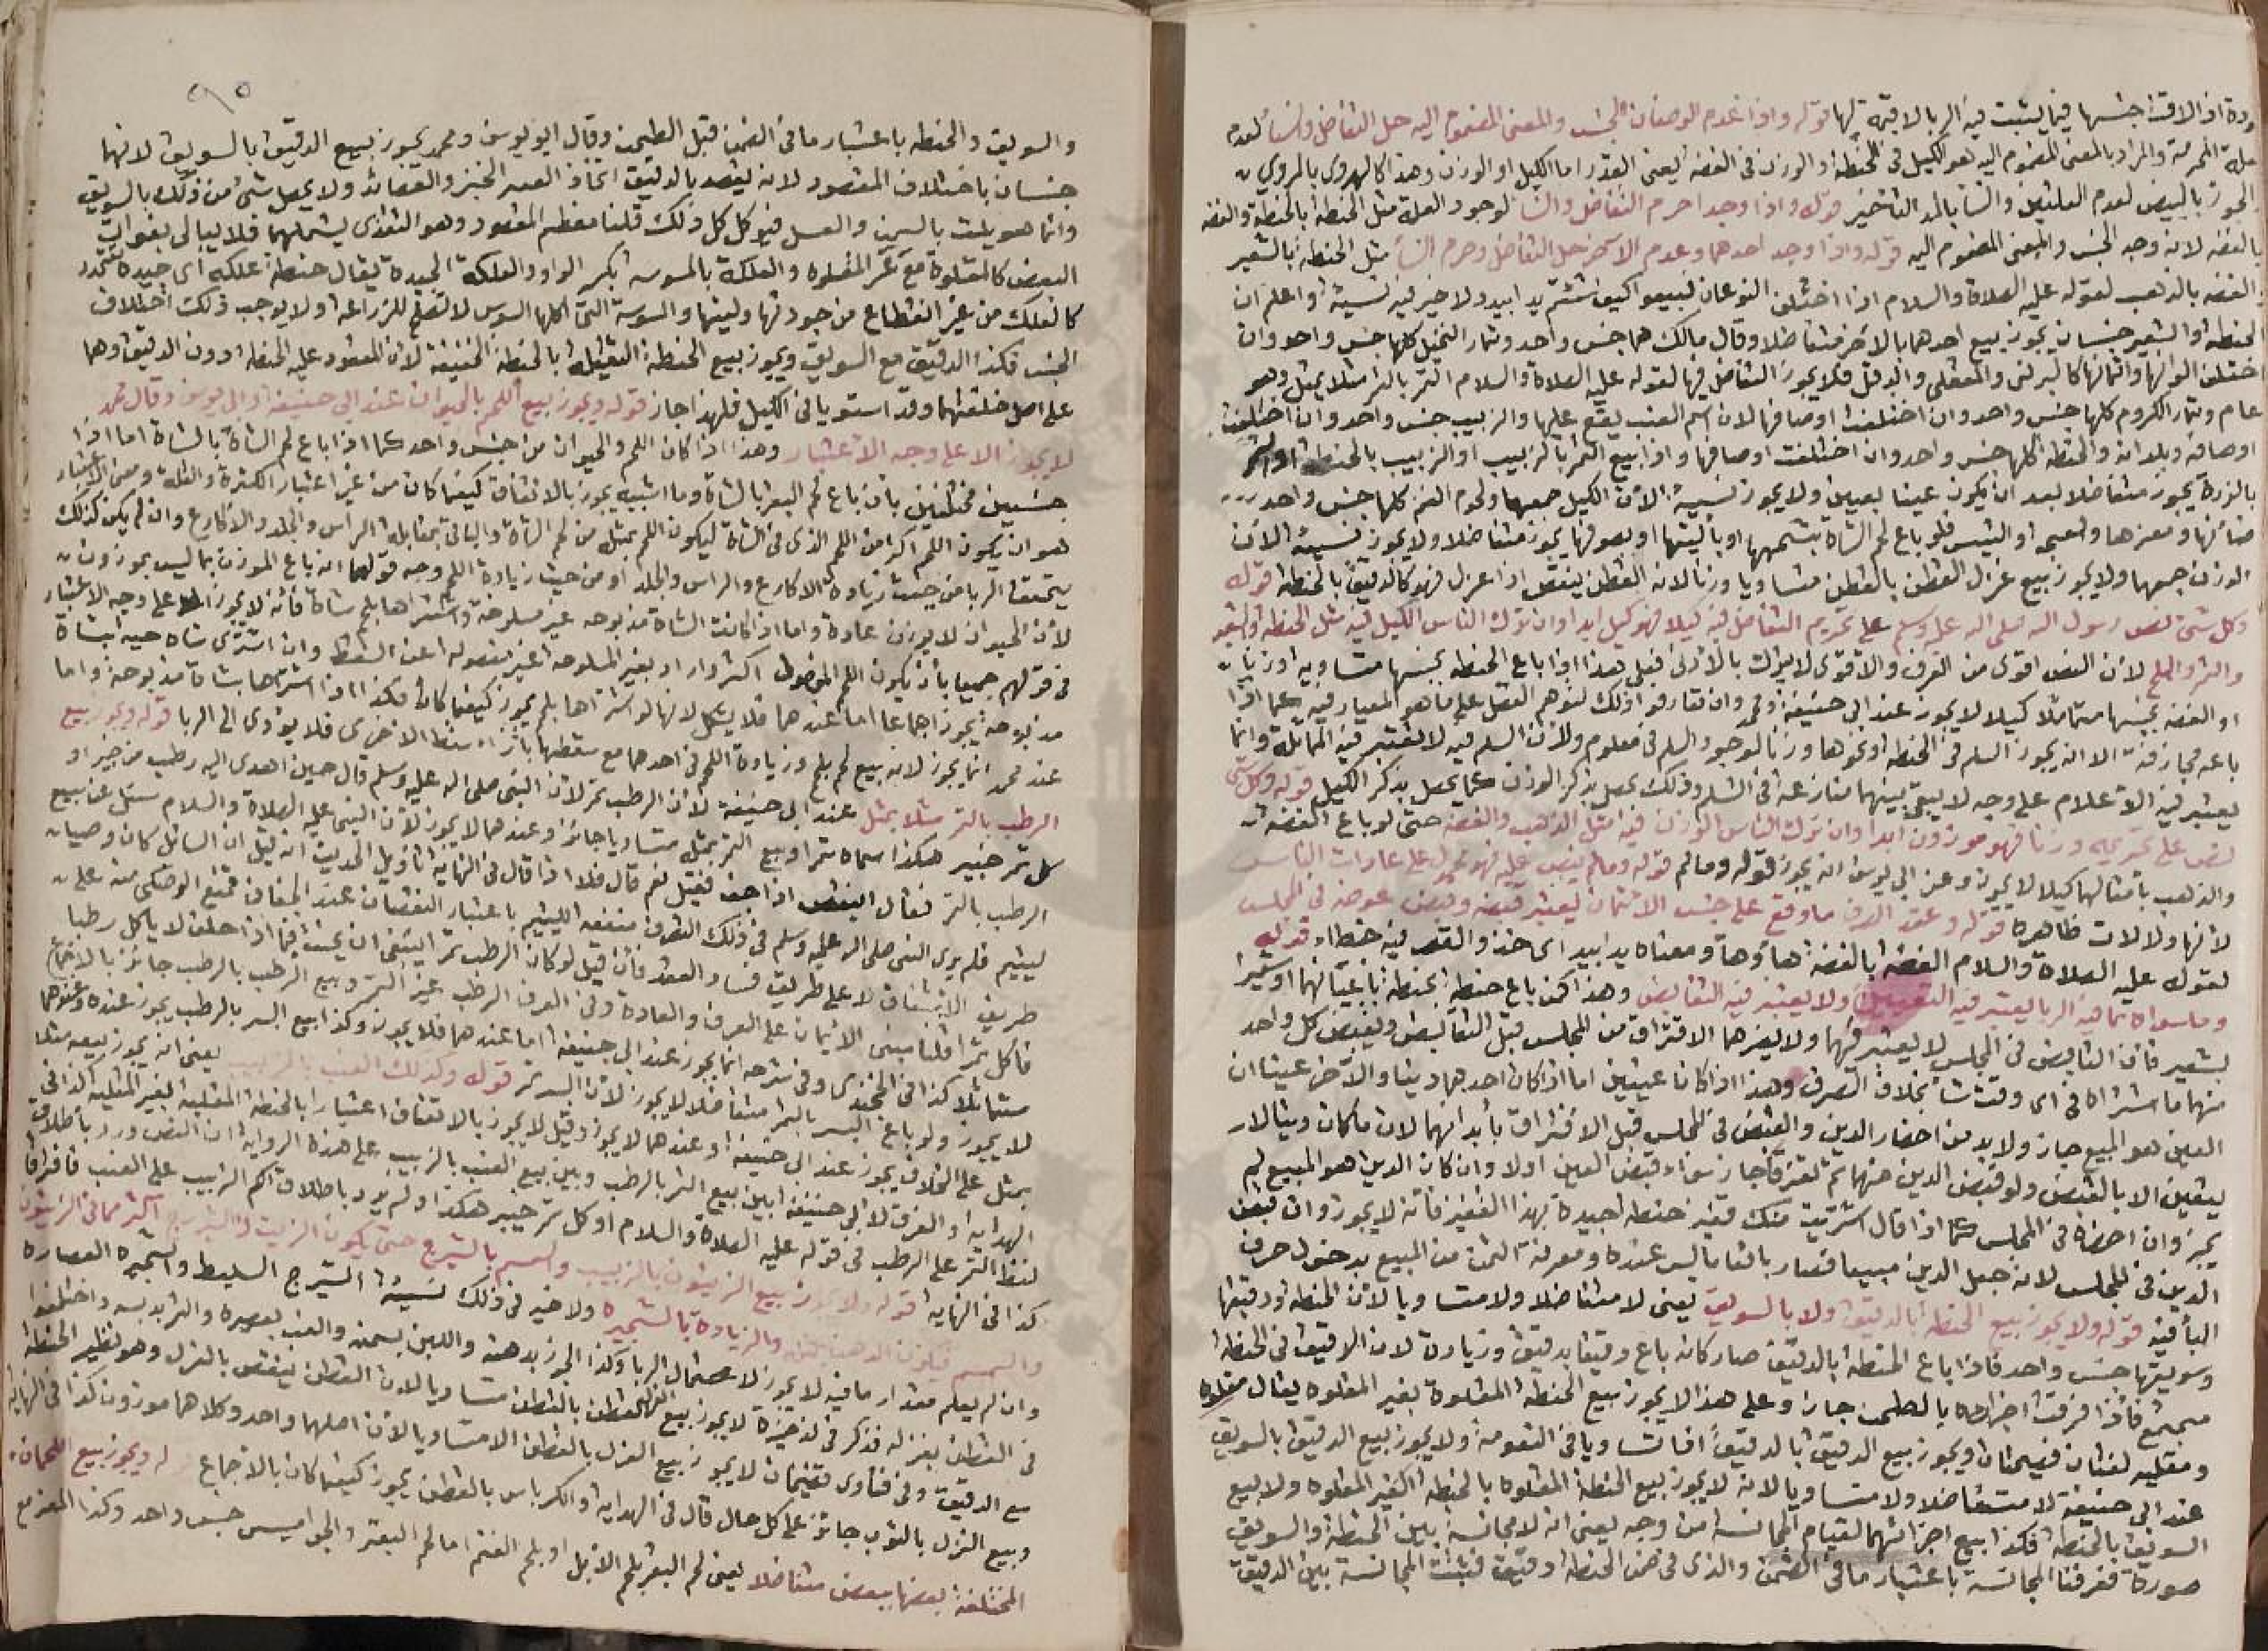 ودة اذا لاقت جنسها فيما يثبت فيه الربا لا قيمة لها قوله واذا عدم الوصفان الجنس والمعنى المضموم اليه حل التفاضل والنسأ لعدم
علة المحرمة والمراد بالمعنى المضموم اليه هو الكيل في الحنطة والوزن في الفضة يعني القدر اما الكيل او الوزن وهذا كالهروي بالمروي
والجوز بالبيض لعدم العلتين والنسا بالمد التأخير قوله واذا وجدا حرم التفاضل والنسا لوجود العلة مثل الحنطة بالحنطة والفضة
بالفضة لانه وجد الجنس والمعنى المضموم اليه قوله واذا وجد احدهما وعدم الآخر حل التفاضل وحرم النسأ مثل الحنطة بالشعير
الفضة بالذهب لقوله عليه الصلاة والسلام اذا اختلف النوعان فبيعوا كيف شئتم يدا بيد ولا خير فيه نسية واعلم ان
الحنطة والشعير جنسان يجوز بيع احدهما بالآخر متفاضلا وقال مالك هما جنس واحد وثمار النخيل كلها جنس واحد وان
اختلف الوانها واثمانها كالبرني والمعقلي والدقل فلا يجوز التفاضل فيها لقوله عليه الصلاة والسلام التمر بالتمر مثلا بمثل وهو
عام وثمار الكروم كلها جنس واحد وان اختلفت اوصافها لان اسم العنب يقع عليها والزبيب جنس واحد وان اختلفت
اوصافه وبلدانه والحنطة كلها جنس واحد وان اختلفت اوصافها واذا بيع التمر بالزبيب او الزبيب بالحنطة او التمر
بالذرة يجوز متفاضلا بعد ان يكون عينا بعين ولا يجوز نسية لان الكيل جمعها ولحوم الغنم كلها جنس واحد
ضأنها ومعزها والنعجة والتيس فلو باع لحم الشاة بشحمها او باليتها او بصوفها يجوز متفاضلا ولا يجوز نسية لان
الوزن جمعها ولا يجوز بيع غزل القطن بالقطن متساويا وزنا لان القطن ينقص اذا غزل فهو كالدقيق بالحنطة قوله
وكل شئ نص رسول الله صلى الله عليه وسلم على تحريم التفاضل فيه كيلا فهو كيل ابدا وان ترك الناس الكيل فيه مثل الحنطة والشعير
والتمر والملح لان النص اقوى من العرف والاقوى لا يترك بالادنى فعلى هذا اذا باع الحنطة بجنسها متساوية وزنا
او الفضة بجنسها متماثلا كيلا لا يجوز عند ابي حنيفة ومحمد وان تعارفوا ذلك لتوهم الفضل على ما هو المعيار فيه كما اذا
باعه مجازفة الا انه يجوز السلم في الحنطة ونحوها وزنا لوجود السلم في معلوم ولان السلم فيه لا يعتبر فيه المماثلة وانما
يعتبر فيه الاعلام على وجه لا يبقى بينهما منازعة في التسلم وذلك يحصل بذكر الوزن كما يحصل بذكر الكيل قوله وكل شئ
نص على تحريمه وزنا فهو موزون ابدا وان ترك الناس الوزن فيه مثل الذهب والفضة حتى لو باع الفضة
والذهب بامثالها كيلا لا يجوز وعن ابي يوسف انه يجوز قوله وما لم قوله وما لم ينص عليه فهو محمول على عادات الناس
لانها ولالات ظاهرة قوله وعقد الصرف ما وقع على جنس الاثمان يعتبر قبضه وقبض عوضه في المجلس
لقوله عليه الصلاة والسلام الفضة بالفضة هاؤها ومعناه يدا بيد اي خذ والقصر فيه خطاء قوله
وما سواه مما فيه الربا يعتبر فيه التعيين ولا يعتبر فيه التقابض وهذا كمن باع حنطة بحنطة باعيانهما او شعيرا
بشعير فان التقابض في المجلس لا يعتبر فيها ولا يضرهما الافتراق من المجلس قبل التقابض ويقبض كل واحد
منهما ما اشتراه في اي وقت شأ بخلاف الصرف وهذا اذا كانا عينين اما اذا كان احدهما دينا والآخر عينا ان
العين هو المبيع جاز ولا بد من احضار الدين والقبض في المجلس قبل الافتراق بأبدانهما لان ما كان دينا لا
يتعين الا بالقبض ولو قبض الدين منهما ثم تفرقا جاز سواء قبض العين اولا وان كان الدين هو المبيع لم
يجز وان احضره في المجلس كما اذا قال اشتريت منك قفيز حنطة جيدة بهذا القفيز فانه لا يجوز وان قبض
الدين في المجلس لانه جعل الدين مبيعا فصار بائعا ما ليس عنده ومعرفة الثمن من المبيع بدخول حرف
البأ فيه قوله ولا يجوز بيع الحنطة بالدقيق ولا بالسويق يعني لا متفاضلا ولا متساويا لان الحنطة ودقيقها
وسويقها جنس واحد فاذا باع الحنطة بالدقيق صار كانه باع دقيقا بدقيق وزيادة لان الدقيق في الحنطة
مجتمع فاذا فرقت اجزاءه بالطحن جاز وعلى هذا لا يجوز بيع الحنطة المقلوة بغير المقلوة يقال مقلوة
ومقلية لغتان فصيحتان ويجوز بيع الدقيق بالدقيق اذا تساويا في النعومة ولا يجوز بيع الدقيق بالسويق
عند ابي حنيفة لا متفاضلا ولا متساويا لانه لا يجوز بيع الحنطة المقلوة بالحنطة الغير المقلوة ولا بيع
السويق بالحنطة فكذا بيع اجزائهما لقيام المجانسة من وجه يعني انه لا مجانسة بين الحنطة والسويق
صورة فعرفنا المجانسة باعتبار ما في الضمن والذي في ضمن الحنطة دقيق فثبتت المجانسة بين الدقيق
٩٥
والسويق والحنطة باعتبار ما في الضمن قبل الطحن وقال ابو يوسف ومحمد يجوز بيع الدقيق بالسويق لانهما
جنسان باختلاف المقصود لانه يقصد بالدقيق اتخاذ الخبز والعصائد ولا يحصل شئ من ذلك بالسويق
وانما هو يلت بالسمن والعسل فيؤكل كل ذلك قلنا معظم المقصود وهو التغذي يشملهما فلا يبالى بفوات
البعض كالمقلوة مع غير المقلوة والعلكة بالمسوسة بكسر الواو والعلكة الجيدة يقال حنطة علكة اي جيدة تمدد
كالعلك من غير انقطاع من جودتها ولينها والمسوسة التي اكلها السوس لا تصلح للزراعة ولا يوجب ذلك اختلاف
الجنس فكذا الدقيق مع السويق ويجوز بيع الحنطة الثقيلة بالحنطة الخفيفة لان المعقود عليه الحنطة دون الدقيق وهما
على اصل خلقتهما وقد استويا في الكيل فلهذا جاز قوله ويجوز بيع اللحم بالحيوان عند ابي حنيفة وابي يوسف وقال محمد
لا يجوز الا على وجه الاعتبار وهذا اذا كان اللحم والحيوان من جنس واحد كما اذا باع لحم الشاة بالشاة اما اذا
جنسين مختلفين بان باع لحم البقر بالشاة وما اشبهه يجوز بالاتفاق كيفما كان من غير اعتبار الكثرة والقلة ومعنى الاعتبار
هو ان يكون اللحم اكثر من اللحم الذي في الشاة ليكون اللحم بمثله من لحم الشاة والباقي بمقابلة الراس والجلد والاكارع وان لم يكن كذلك
يتحقق الربا من حيث زيادة الاكارع والراس والجلد او من حيث زيادة اللحم وجه قولهما انه باع الموزون بما ليس بموزون
لان الحيوان لا يوزن عادة واما اذا كانت الشاة مذبوحة غير مسلوخة واشتراها بلحم شاة فانه لا يجوز الا على وجه الاعتبار
في قولهم جميعا بأن يكون اللحم المفصول اكثر واراد بغير المسلوخة غير مفصولة عن السقط وان اشترى شاة حية بشاة
مذبوحة يجوز اجماعا اما عندهما فلا يشكل لانها لو اشتراها بلحم يجوز كيفما كان فكذا اذا اشتراها بشاة مذبوحة واما
عند محمد انما يجوز لانه بيع لحم بلحم وزيادة اللحم في احدهما مع سقطها بازاء سقط الاخرى فلا يؤدى الى الربا قوله ويجوز بيع
الرطب بالتمر مثلا بمثل عند ابي حنيفة لان الرطب تمر لان النبي صلى الله عليه وسلم قال حين اهدى اليه رطب من خيبر او
كل تمر خيبر هكذا سماه تمرا وبيع التمر بمثله متساويا جائز وعندهما لا يجوز لان النبي عليه الصلاة والسلام سئل عن بيع
الرطب بالتمر فقال اينقص اذا جف فقيل نعم قال فلا اذا قال في النهاية تاويل الحديث انه قيل ان السائل كان وصيا
ليتيم فلم ير النبي صلى الله عليه وسلم في ذلك التصرف منفعة لليتيم باعتبار النقصان عند الجفاف فمنع الوصي منه على
طريق الاشفاق لا على طريق فساد العقد فان قيل لو كان الرطب تمرا ينبغي ان يحنث فيما اذا حلف لا ياكل رطبا
فاكل تمرا قلنا مبنى الايمان على العرف والعادة وفي العرف الرطب غير التمر وبيع الرطب بالرطب جائز بالاجماع
متماثلا كذا في الخجندي وفي شرحه انما يجوز عند ابي حنيفة اما عندهما فلا يجوز وكذا بيع البسر بالرطب يجوز عنده وعندهما
لا يجوز ولو باع البسر بالتمر متفاضلا لا يجوز لان البسر تمر قوله وكذلك العنب بالزبيب يعني انه يجوز بيعه مثلا
بمثل على الخلاف يجوز عند ابي حنيفة وعندهما لا يجوز وقيل لا يجوز بالاتفاق اعتبارا بالحنطة المقلية بغير المقلية كذا في
الهداية والفرق لابي حنيفة بين بيع التمر بالرطب وبين بيع العنب بالزبيب على هذه الرواية ان النص ورد باطلاق
لفظ التمر على الرطب في قوله عليه الصلاة والسلام او كل تمر خيبر هكذا ولم يرد باطلاق اسم الزبيب على العنب فافترقا
كذا في النهاية قوله ولا يجوز بيع الزيتون بالزيت والسمسم بالشيرج حتى يكون الزيت والشيرج اكثر مما في الزيتون
والسمسم فيكون الدهن بمثله والزيادة بالثجيرة ولا خير في ذلك نسية الشيرج السليط والثجيرة العصارة
وان لم يعلم مقدار ما فيه لا يجوز لاحتمال الربا وكذا الجوز بدهنه واللبن بسمنه والعنب بعصيره والتمر بدبسه واختلفوا
في القطن بغزله فذكر في الذخيرة لا يجوز بيع غزل القطن بالقطن متساويا لان القطن ينقص بالغزل وهو نظير الحنطة
مع الدقيق وفي فتاوى قاضيخان لا يجوز بيع الغزل بالقطن الا متساويا لان اصلهما واحد وكلاهما موزون كذا في النهاية
وبيع الغزل بالثوب جائز على كل حال قال في الهداية والكرباس بالقطن يجوز كيفما كان بالاجماع قوله ويجوز بيع اللحمان
المختلفة بعضها ببعض متفاضلا يعني لحم البقر بلحم الابل او بلحم الغنم اما لحم البقر والجواميس جنس واحد وكذا المعز مع